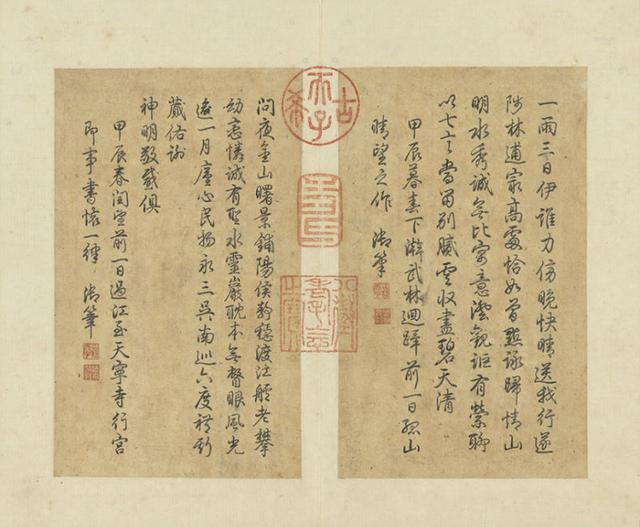 一雨三日伊誰力傍晚快晴送我行遂
陟林逋家高處恰如曾點詠歸情山
明水秀誠無比寄意澄觀詎有縈聊
以七言當留別騰雲收盡碧天清
甲辰暮春下澣武林迴蹕前一日孤山
晴望之作 御筆
古希天子
壽
八徵耄念之寶
問夜金山曙景鋪陽侯靜穩渡江艫老攀
幼戀憐誠有聖水靈巖耽本無瞥眼風光
逾一月廑心民物永三吳南巡六度
蕆佑謝
神明敬感俱
甲辰春閏望前一日過江至天寧寺行宮
即事書懷一律 御筆